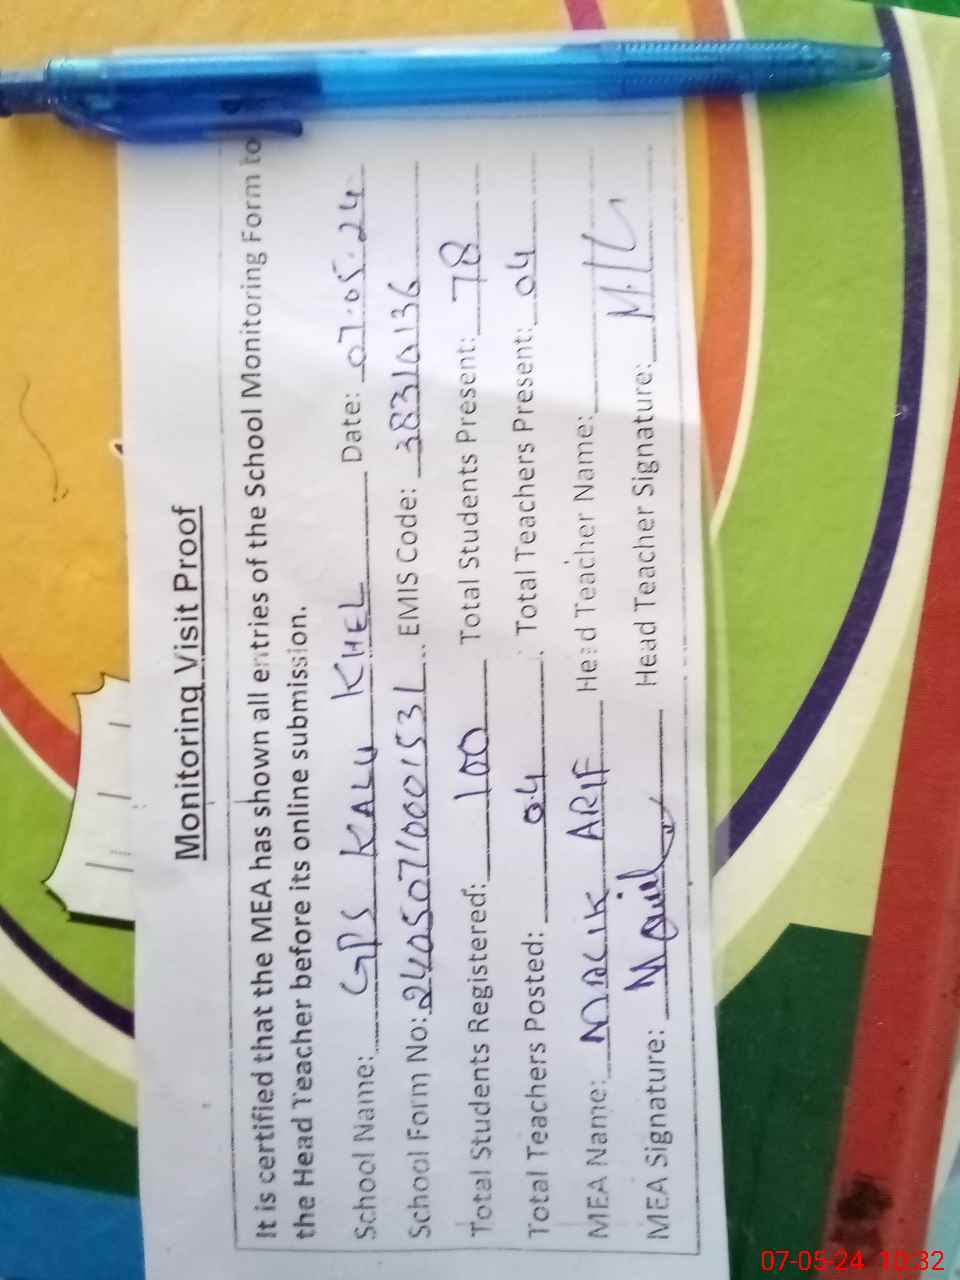 Monitoring Visit Proof
It is certified that the MEA has shown all entries of the School Monitoring Form to
the Head Teacher before its online submission.
School Name: GPS KALU KHEL Date: 07.05.24
School Form No: 24050710001531 EMIS Code: 38310136
Total Students Registered: 100 Total Students Present: 78
Total Teachers Posted: 04 Total Teachers Present: 04
MEA Name: MALIK ARIF Head Teacher Name:
MEA Signature: Head Teacher Signature:
07-05-24 10:32